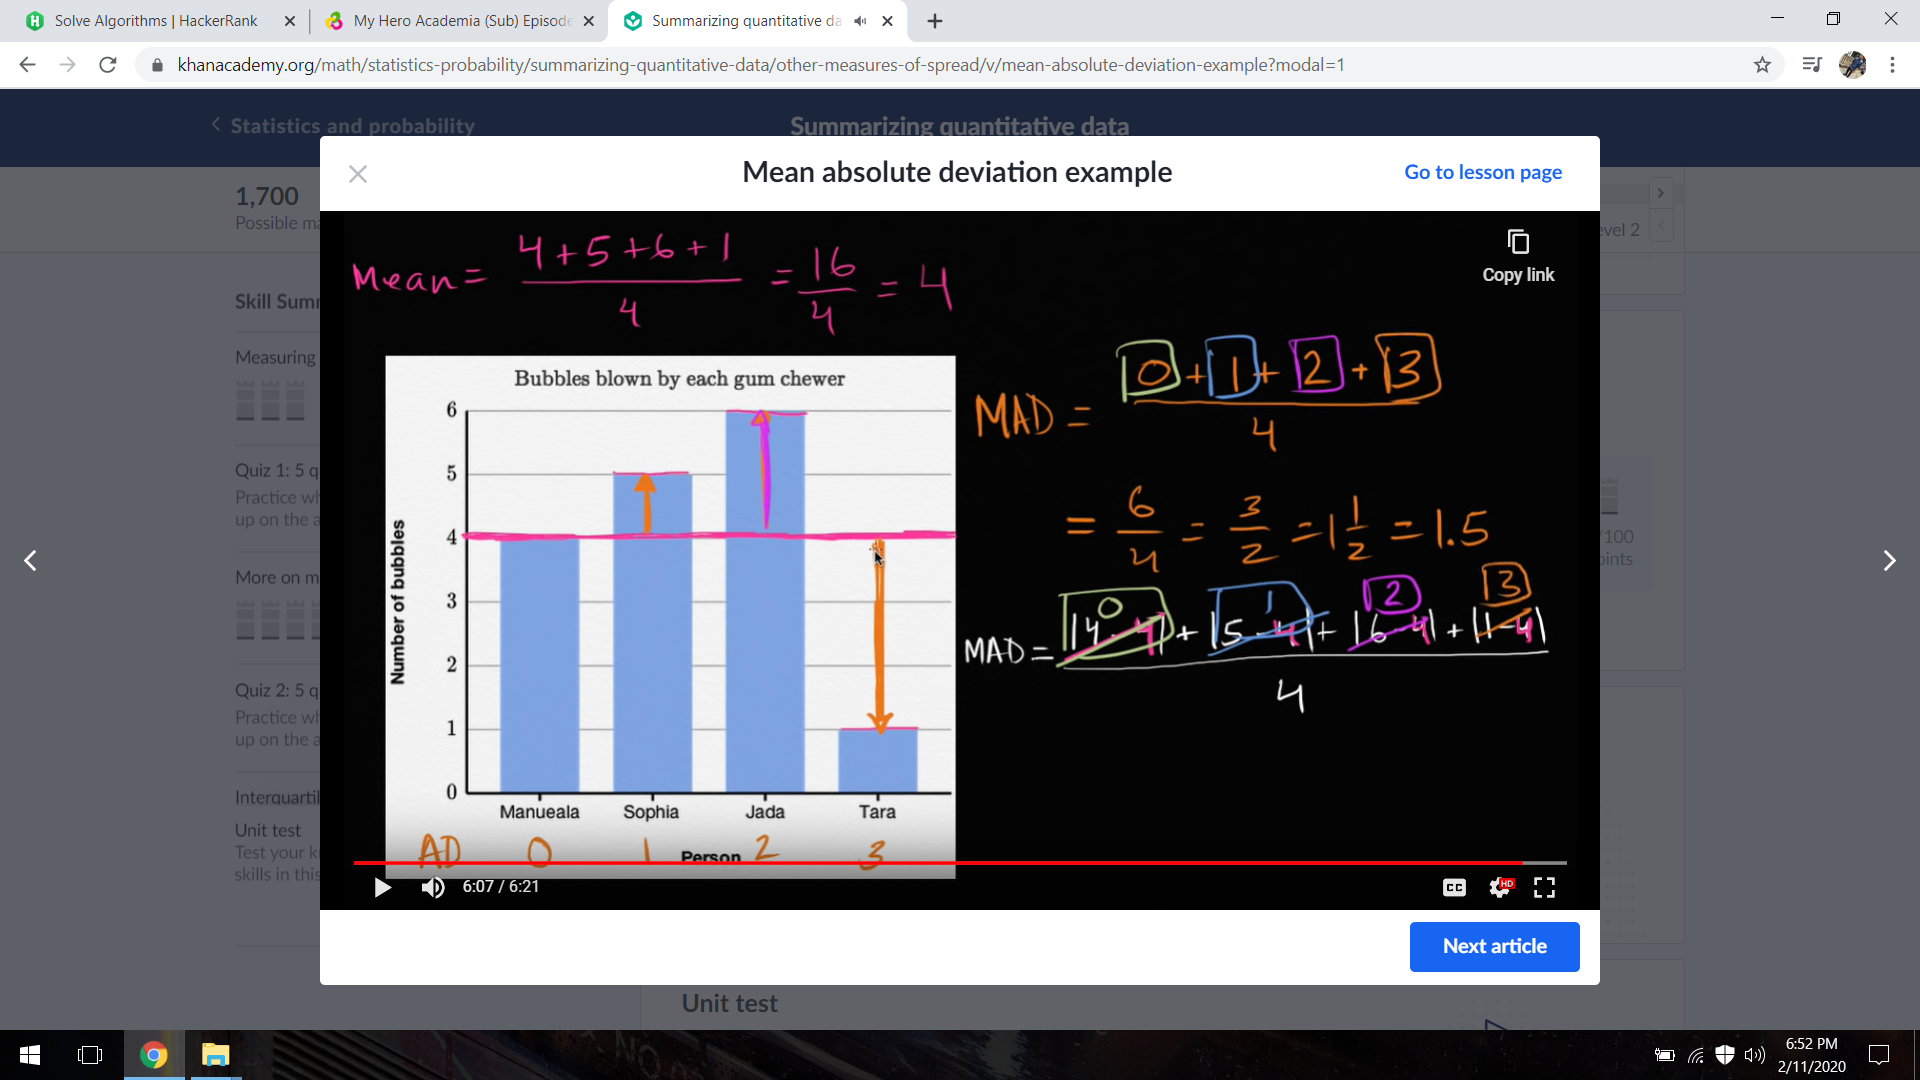 Solve Algorithms | HackerRank
My Hero Academia (Sub) Episode
Summarizing quantitative da
khanacademy.org/math/statistics-probability/summarizing-quantitative-data/other-measures-of-spread/v/mean-absolute-deviation-example?modal=1
Statistics and probability
Summarizing quantitative data
1,700
Possible ma
evel 2
Skill Summ
Measuring
Quiz 1: 5 q
Practice wh
up on the a
More on m
Quiz 2: 5 q
Practice wh
up on the a
Interquartil
Unit test
Test your k
skills in this
/100
oints
Mean absolute deviation example
Go to lesson page
Copy link
Mean = 4 + 5 + 6 + 1 / 4 = 16 / 4 = 4
Bubbles blown by each gum chewer
Number of bubbles
6
5
4
3
2
1
0
Manueala Sophia Jada Tara
Person
AD 0 1 2 3
MAD = 0 + 1 + 2 + 3 / 4
= 6 / 4 = 3 / 2 = 1 1/2 = 1.5
0 1 2 3
MAD = |4 - 4| + |5 - 4| + |6 - 4| + |1 - 4| / 4
6:07 / 6:21
CC
HD
Next article
Unit test
6:52 PM
2/11/2020